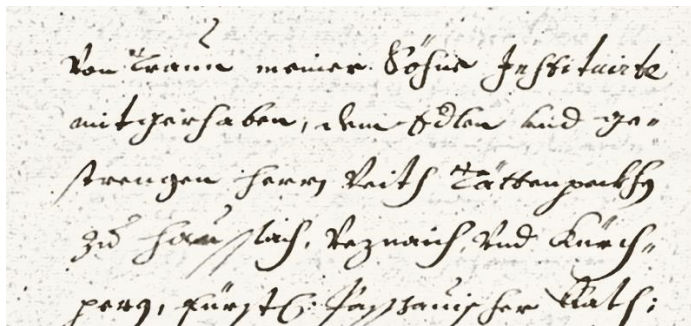 Von Traun meiner Söhne Instituirte
mitgerhaben, dem Edlen und ge-
strengen herrn Veith Tättenpeckh
zu Haußlach, Veznaich, Und Kürch-
perg, fürstl: Passauischer Rath: